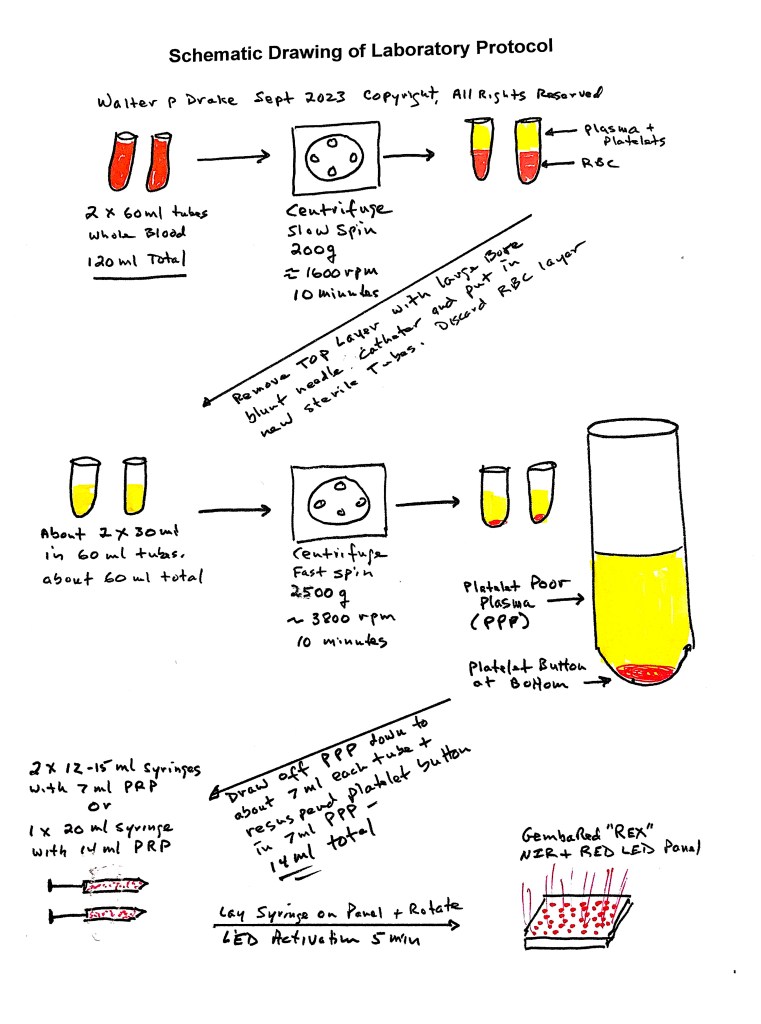 Schematic Drawing of Laboratory Protocol
Walter P Drake Sept 2023 Copyright, All Rights Reserved
Plasma +
Platelets
RBC
2 x 60ml tubes
Whole Blood
120 ml Total
Centrifuge
Slow Spin
200g
≈ 1600 rpm
10 minutes
Remove Top Layer with large Bore
blunt needle. Catheter and put in
new sterile Tubes. Discard RBC layer
About 2 x 30 ml
in 60 ml tubes.
about 60 ml total
Centrifuge
Fast spin
2500 g
~ 3800 rpm
10 minutes
Platelet Poor
Plasma
(PPP)
Platelet Button
at Bottom
Draw off PPP down to
about 7 ml each tube +
resuspend platelet button
in 7ml PPP -
14 ml total
2 x 12-15 ml Syringes
with 7 ml PRP
Or
1 x 20 ml Syringe
with 14 ml PRP
Lay Syringe on Panel + Rotate
LED Activation 5 min
GembaRed "REX"
NIR + RED LED Panel